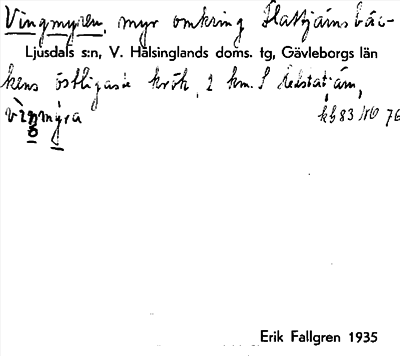 Vingmyren, myr omkring Flattjärnsbäc-
Ljusdals s:n, V. Hälsinglands doms. tg, Gävleborgs län
kens östligaste krök, 2 km. S
kb 83 NO 76
Erik Fallgren 1935